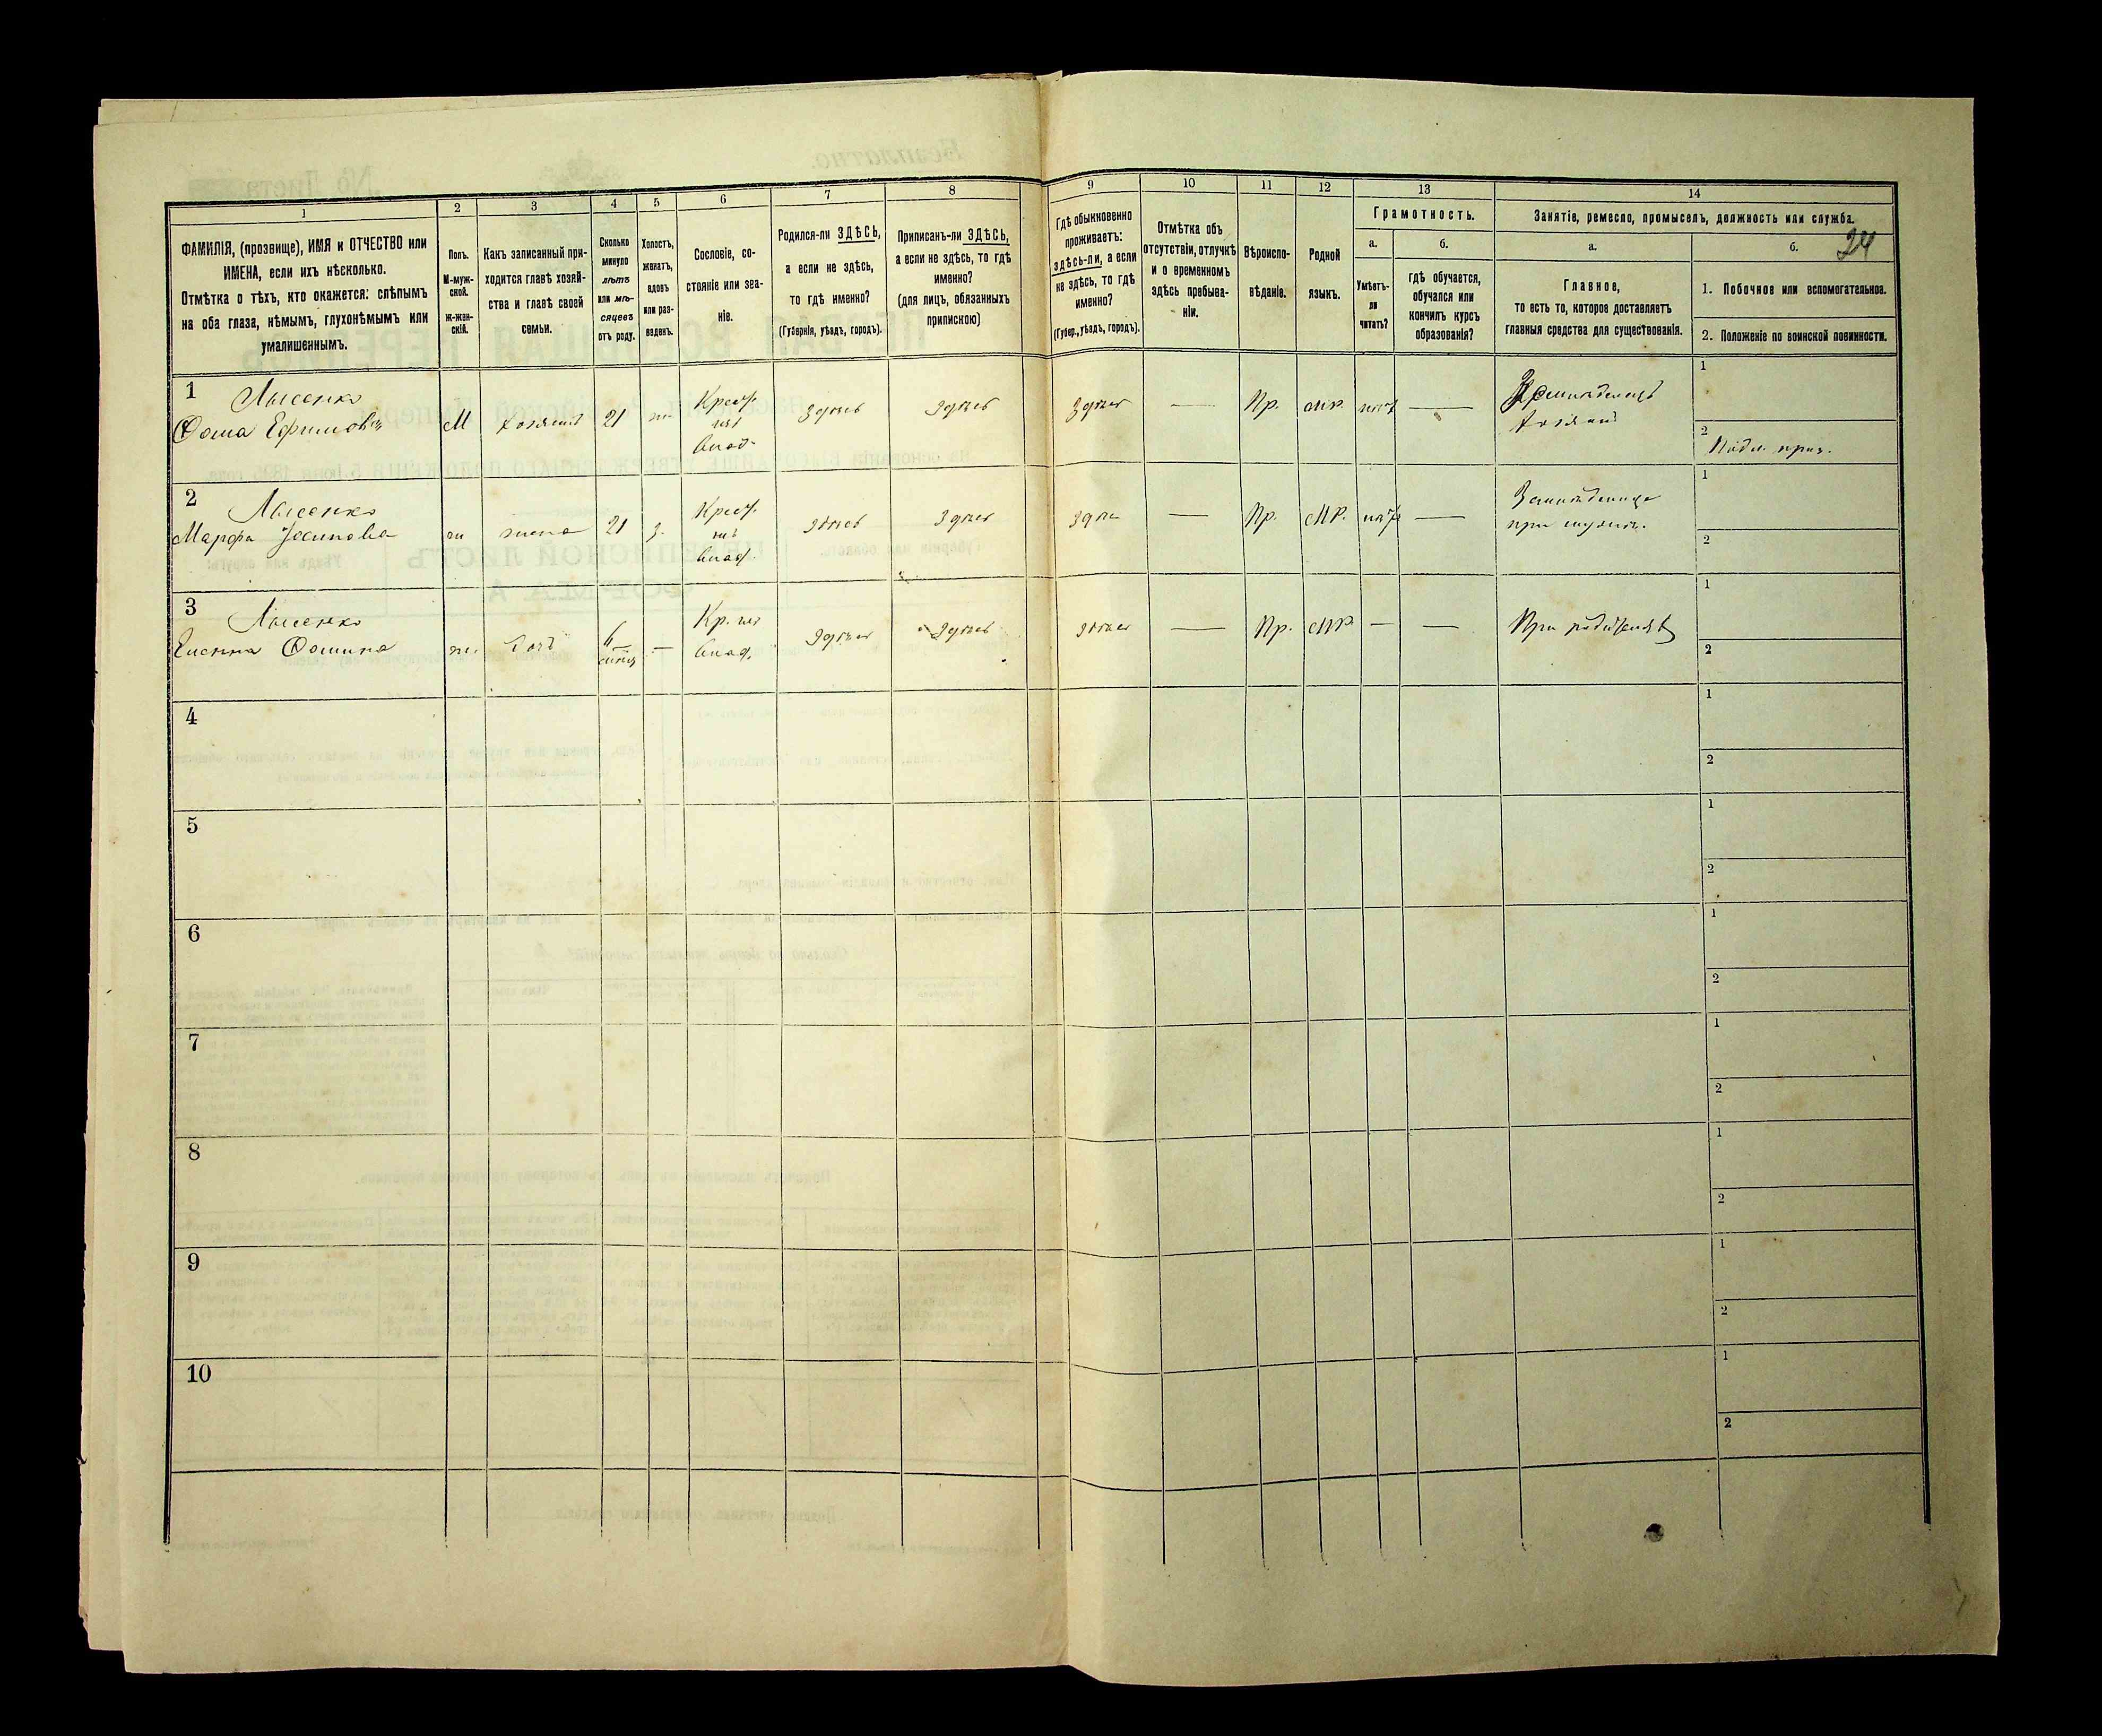 1
2
3
4
5
6
7
8
9
10
11
12
13
14
ФАМИЛІЯ, (прозвище), ИМЯ и ОТЧЕСТВО или
ИМЕНА, если ихъ нѣсколько.
Отмѣтка о тѣхъ, кто окажется: слѣпымъ
на оба глаза, нѣмымъ, глухонѣмымъ или
умалишеннымъ.
Полъ.
М-муж-
ской.
ж-жен-
скій.
Какъ записанный при-
ходится главѣ хозяй-
ства и главѣ своей
семьи.
Сколько
минуло
лѣтъ
или мѣ-
сяцевъ
отъ роду.
Холостъ,
женатъ,
вдовъ
или раз-
веденъ.
Сословіе, со-
стояніе или зва-
ніе.
Родился-ли ЗДѢСЬ,
а если не здѣсь,
то гдѣ именно?
(Губернія, уѣздъ, городъ).
Приписанъ-ли ЗДѢСЬ,
а если не здѣсь, то гдѣ
именно?
(для лицъ, обязанныхъ
припискою)
Гдѣ обыкновенно
проживаетъ:
здѣсь-ли, а если
не здѣсь, то гдѣ
именно?
(Губер., уѣздъ, городъ).
Отмѣтка объ
отсутствіи, отлучкѣ
и о временномъ
здѣсь пребыва-
ніи.
Вѣроиспо-
вѣданіе.
Родной
языкъ.
Грамотность.
а.
б.
Умѣетъ-
ли
читать?
гдѣ обучается,
обучался или
кончилъ курсъ
образованія?
Занятіе, ремесло, промыселъ, должность или служба.
а.
б.
24
Главное,
то есть то, которое доставляетъ
главныя средства для существованія.
1. Побочное или вспомогательное.
2. Положеніе по воинской повинности.
1
Лысенко
Фома Ефимовъ
М
хозяинъ
21
Крест.
изъ
влад.
здѣсь
здѣсь
здѣсь
—
Пр.
МР.
нѣтъ
—
Земледелецъ
хозяинъ
1
2
2
Лысенко
Марфа Іосипова
ж
жена
21
з.
Крест.
изъ
влад.
здѣсь
здѣсь
здѣсь
—
Пр.
МР.
нѣтъ
—
1
2
3
Лысенко
Елена Фомина
ж.
дочь
6
—
Кр. изъ
влад.
здѣсь
здѣсь
здѣсь
—
Пр.
МР.
—
—
При родителяхъ
1
2
4
1
2
5
1
2
6
1
2
7
1
2
8
1
2
9
1
2
10
1
2